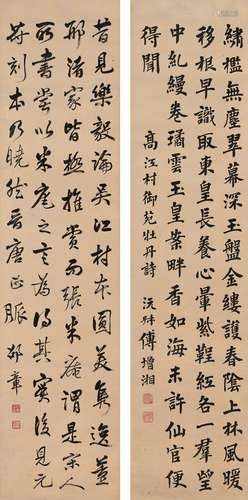 繡檻無塵翠幕深玉盤金縷護春上林風暖
移根早識取東皇長養心暈紫鞓紅各一羣瑩
中虬縵卷璚雲玉皇案畔香如海未許仙官便
得聞
高江村御苑牡丹詩 沅叔傅增湘
昔見樂毅論吳江村本圓美雋逸董
邢諸家皆極推賞而張米庵謂是宋人
所書嘗以米庵之言為得其實後見元
祐刻本乃曉然晉唐正脈 邵章